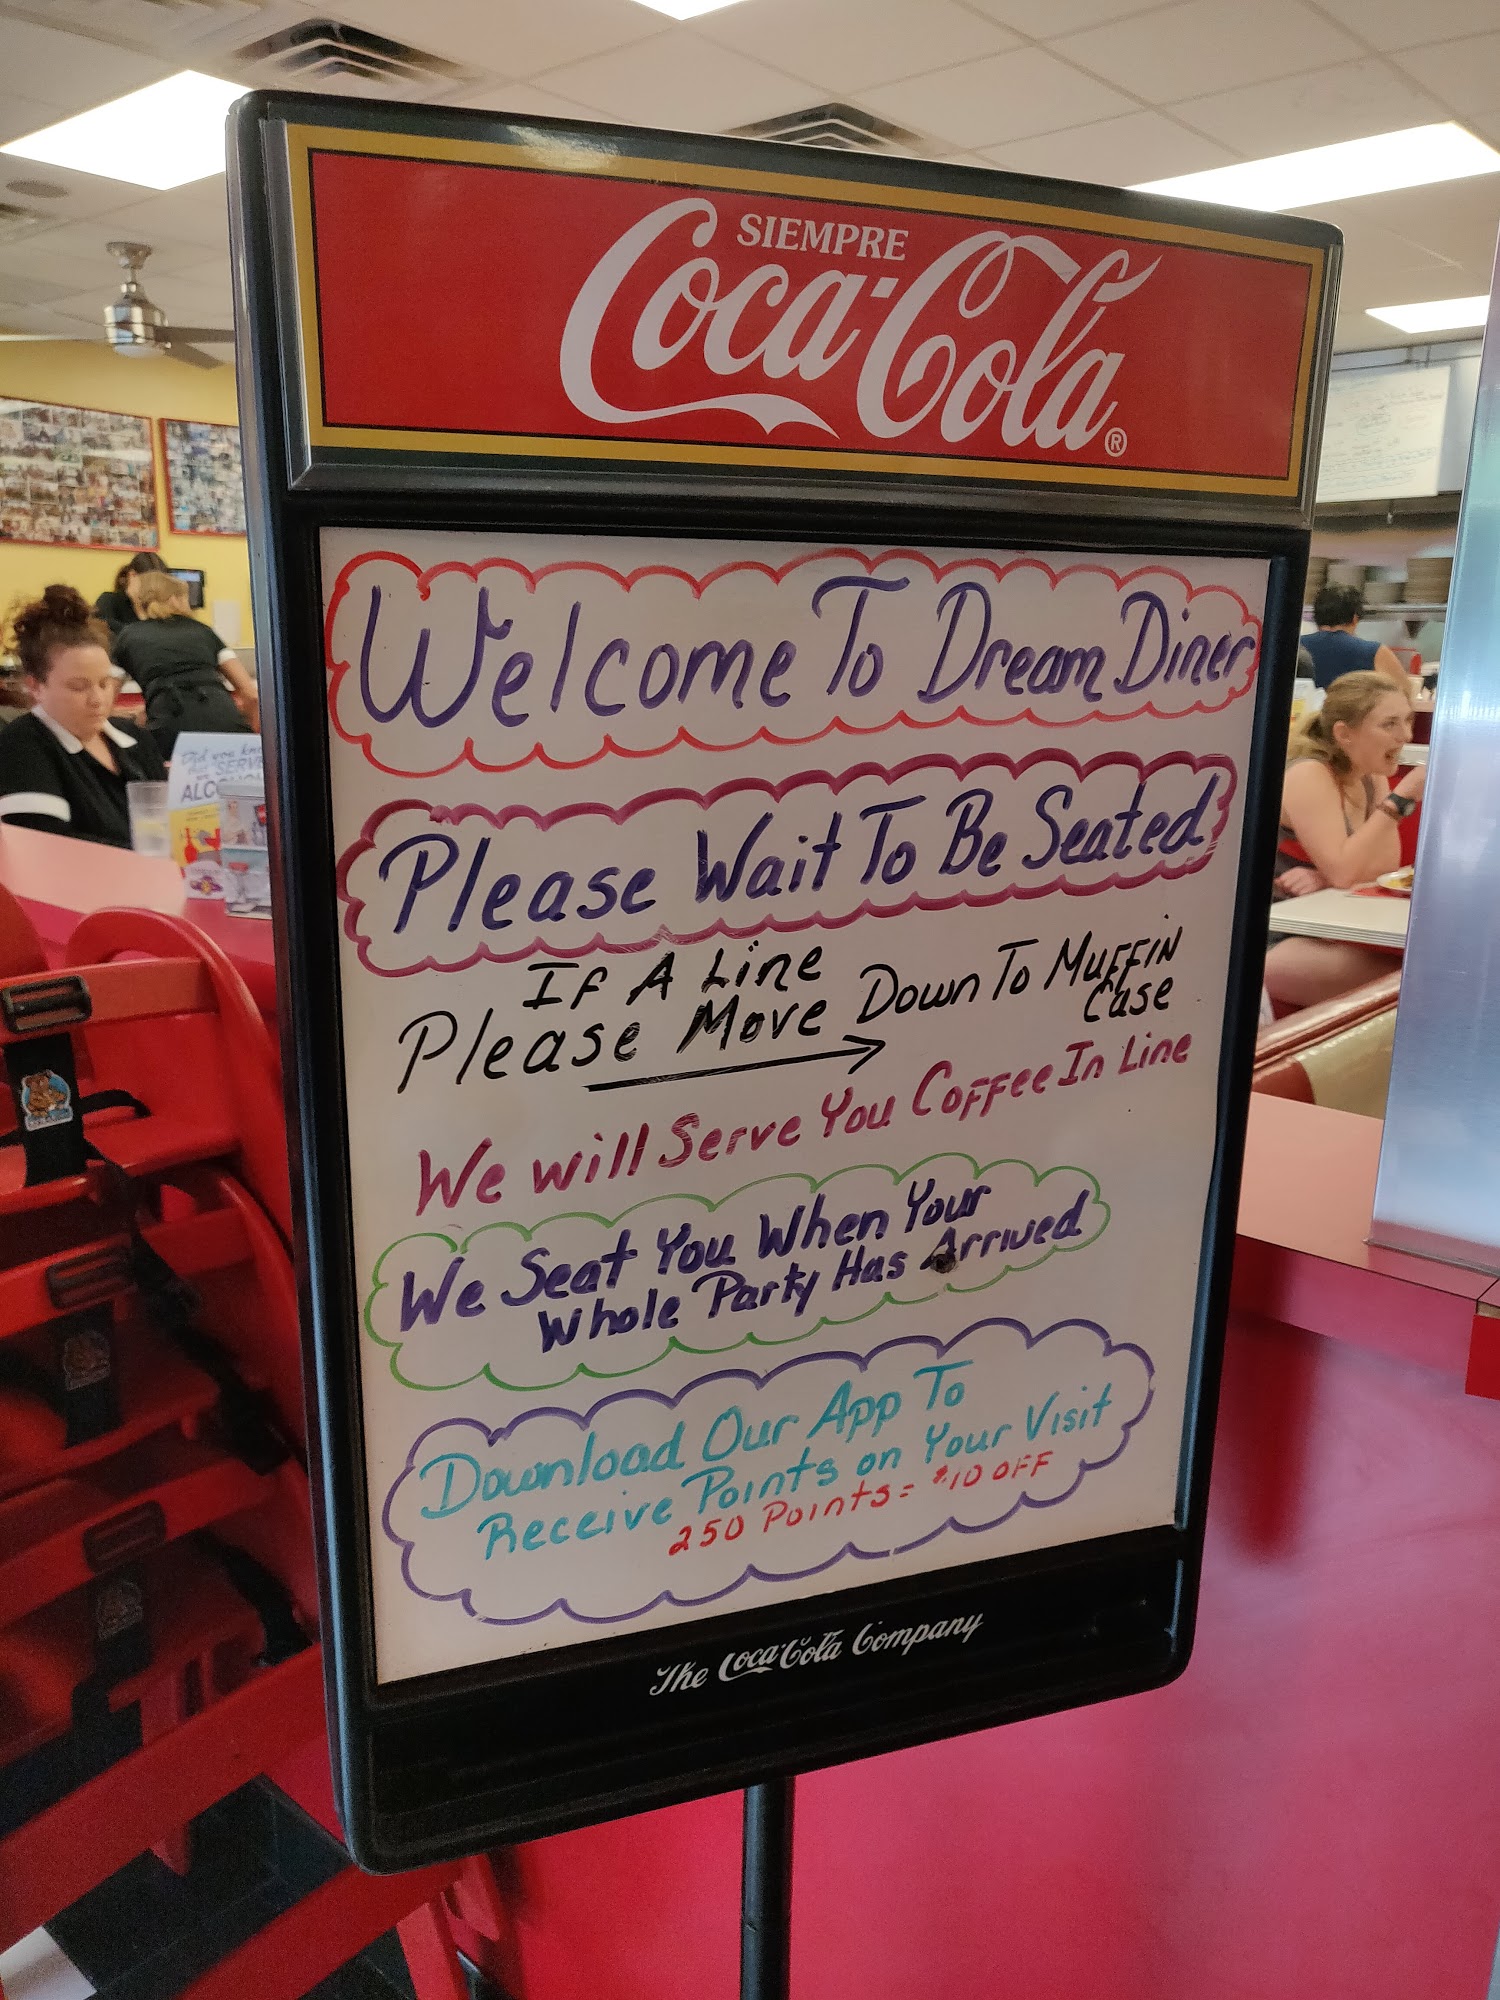 SIEMPRE
Coca-Cola®
Welcome To Dream Diner
Please Wait To Be Seated
If A Line
Please Move Down To Muffin
Case
We will Serve You Coffee In Line
We Seat You When Your
Whole Party Has Arrived
Download Our App To
Receive Points on Your Visit
250 Points = $10 OFF
The Coca-Cola Company
Did you know
SERVE
ALCO